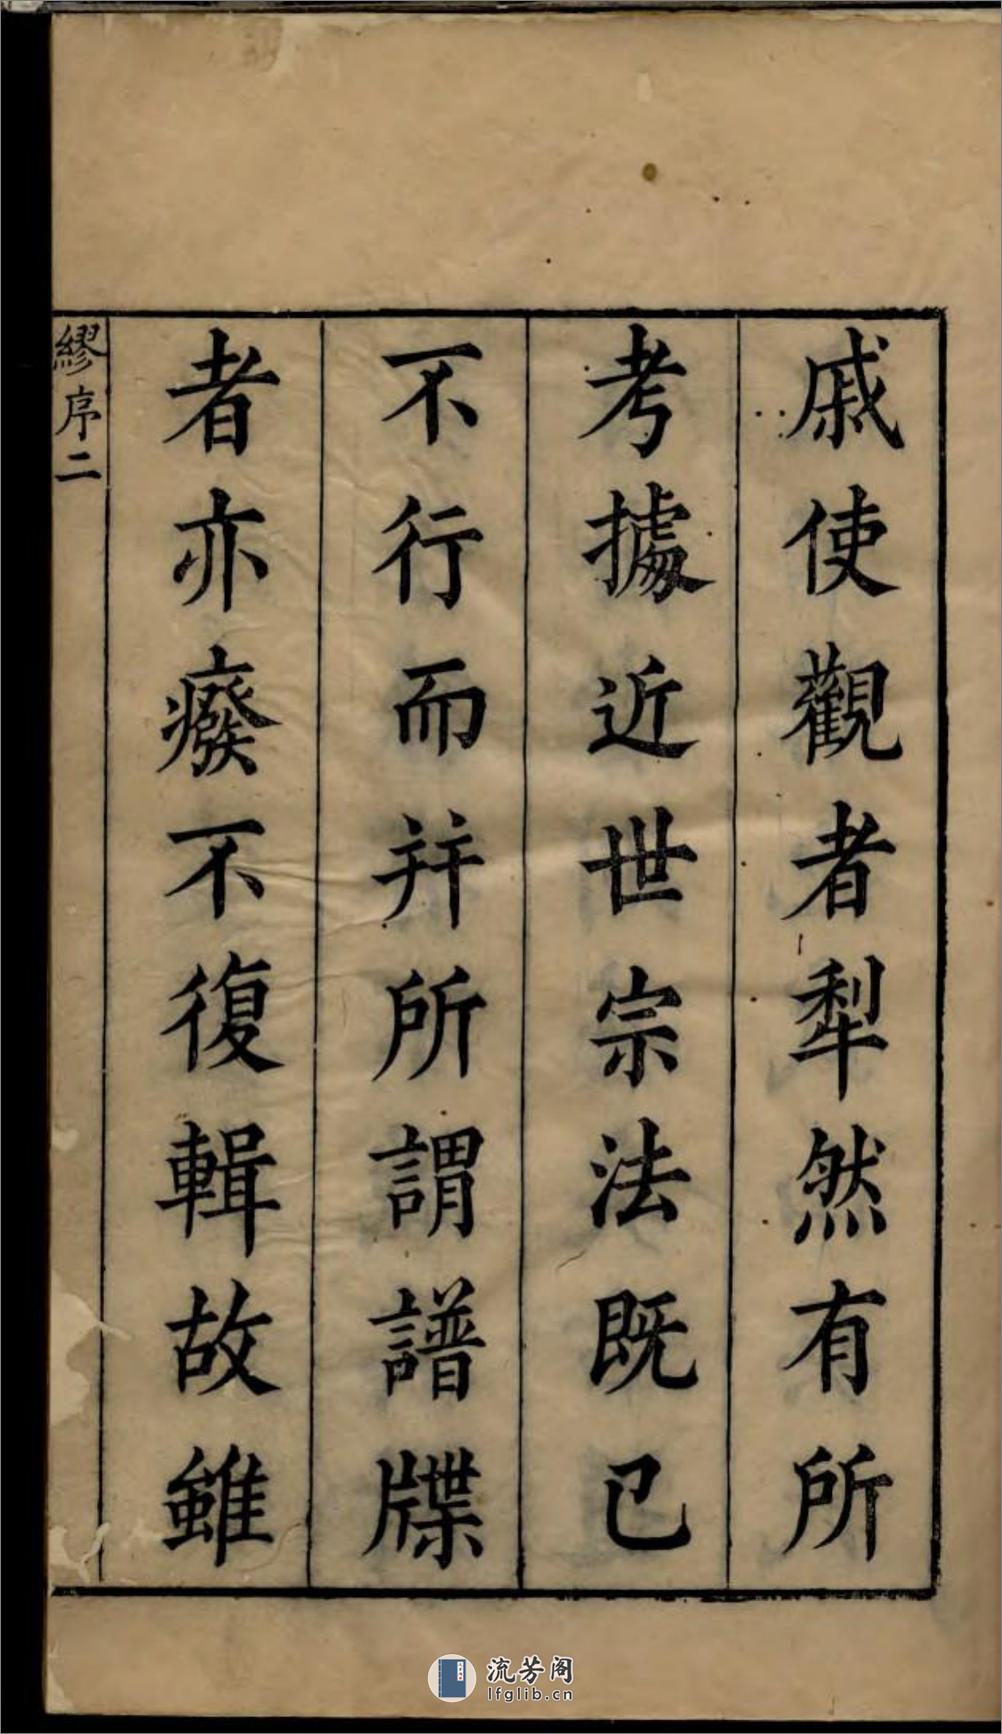 戚使觀者犁然有所
考據近世宗法既已
不行而并所謂譜牒
者亦癈不復輯故雖
繆序二
流芳阁
lfglib.cn